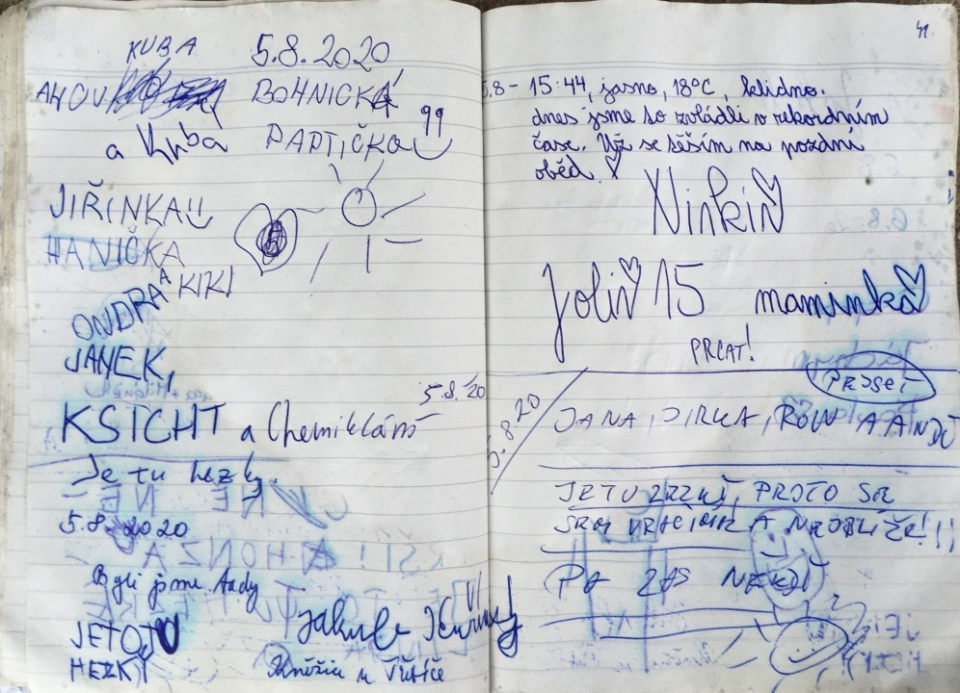 KUBA
5.8.2020
AHOJ
BOHNICKÁ
a Kuba
PAPTIČKO
JIŘINKA
HANIČKA
ONDRA A KIKI
JANEK,
KSICHT a Chemiklání
5.8.'20
Je tu hezky.
5.8.2020
Byli jsme tady
JE TO TU
HEZKÝ
5.8 - 15:44, jasno, 18°C, klidno.
dnes jsme to zvládli v rekordním
čase. Už se těším na pozdní
oběd.
Ninkin
15 maminka
PRCAT!
PROSEČ
5.8.20
JANA, JIRKA,
JE TU PROTO SE
SEM VRACÍME A
PA ZAS NEKDY